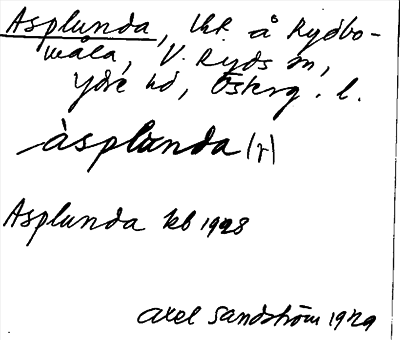 Asplunda, lht. å Rydbo-
måla, V. Ryds sn,
Ydre hd, Österg. l.
àsplunda (r)
Asplunda kb 1928
Axel Sandström 1929